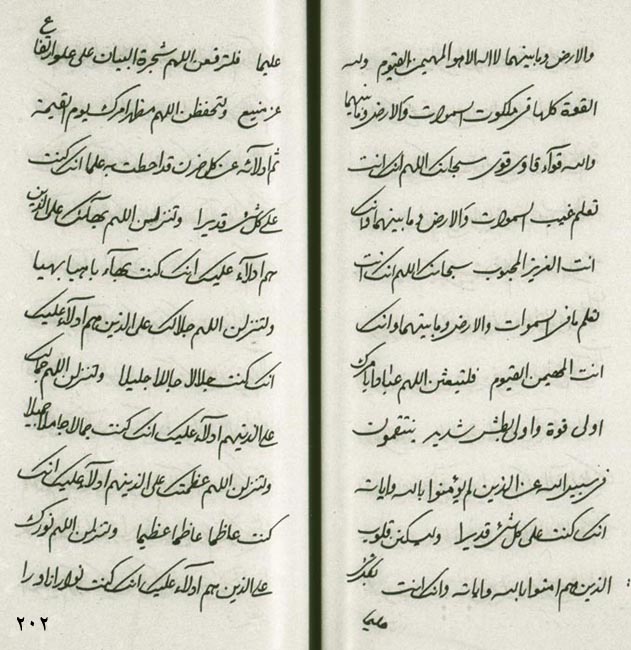 والارض وما بينهما لا اله الا هو المهيمن القيوم ولله
القوة كلها في ملكوت السموات والارض وما بينهما
والله قوآء قاوى قوى سبحانك اللهم انك انت
تعلم غيب السموات والارض وما بينهما وانك
انت العزيز المحبوب سبحانك اللهم انك انت
تعلم ما في السموات والارض وما بينهما وانك
انت المهيمن القيوم فلتبعثن اللهم عبادا بامرك
اولى قوة واولى بطش شديد ينتقمون
في سبيل الله عن الذين لم يؤمنوا بالله واياته
انك كنت على كل شئ قديرا وليسكن قلوب
الذين هم امنوا بالله واياته وانك انت بكل شئ
عليما
عليما فلترفعن اللهم شجرة البيان على علو ارتفاع
عز منيع ولتحفظن اللهم مظهر امرك يوم القيمة
ثم ادلائه عن كل حزن قد احطت به علما انك كنت
على كل شئ قديرا ولتنزلن اللهم بهآئك على الذين
هم ادلاء عليك انك كنت بهآء باهيا بهيا
ولتنزلن اللهم جلالك على الذين هم ادلاء عليك
انك كنت جلالا جاللا جليلا ولتنزلن اللهم جمالك
على الذينهم ادلاء عليك انك كنت جمالا جاملا جميلا
ولتنزلن اللهم عظمتك على الذينهم ادلاء عليك انك
كنت عاظما عاظما عظيما ولتنزلن اللهم نورك
على الذين هم ادلاء عليك انك كنت نوارا ناورا
٢٠٢